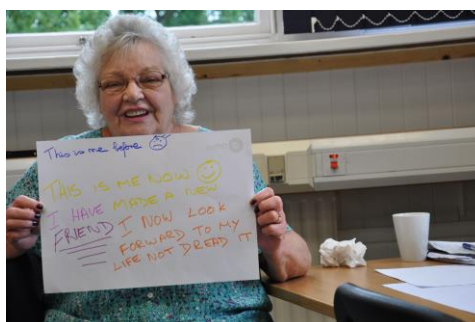 This is me before
THIS IS ME NOW
I HAVE MADE A NEW
FRIEND I NOW LOOK
FORWARD TO MY
LIFE NOT DREAD IT